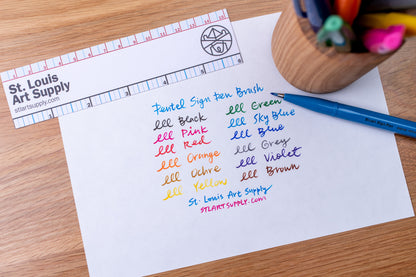 St. Louis
Art Supply
stlartsupply.com
Pentel Sign Pen Brush
lll Black
lll Pink
lll Red
lll Orange
lll Ochre
lll Yellow
lll Green
lll Sky Blue
lll Blue
lll Grey
lll Violet
lll Brown
St. Louis Art Supply
STLARTSUPPLY.com